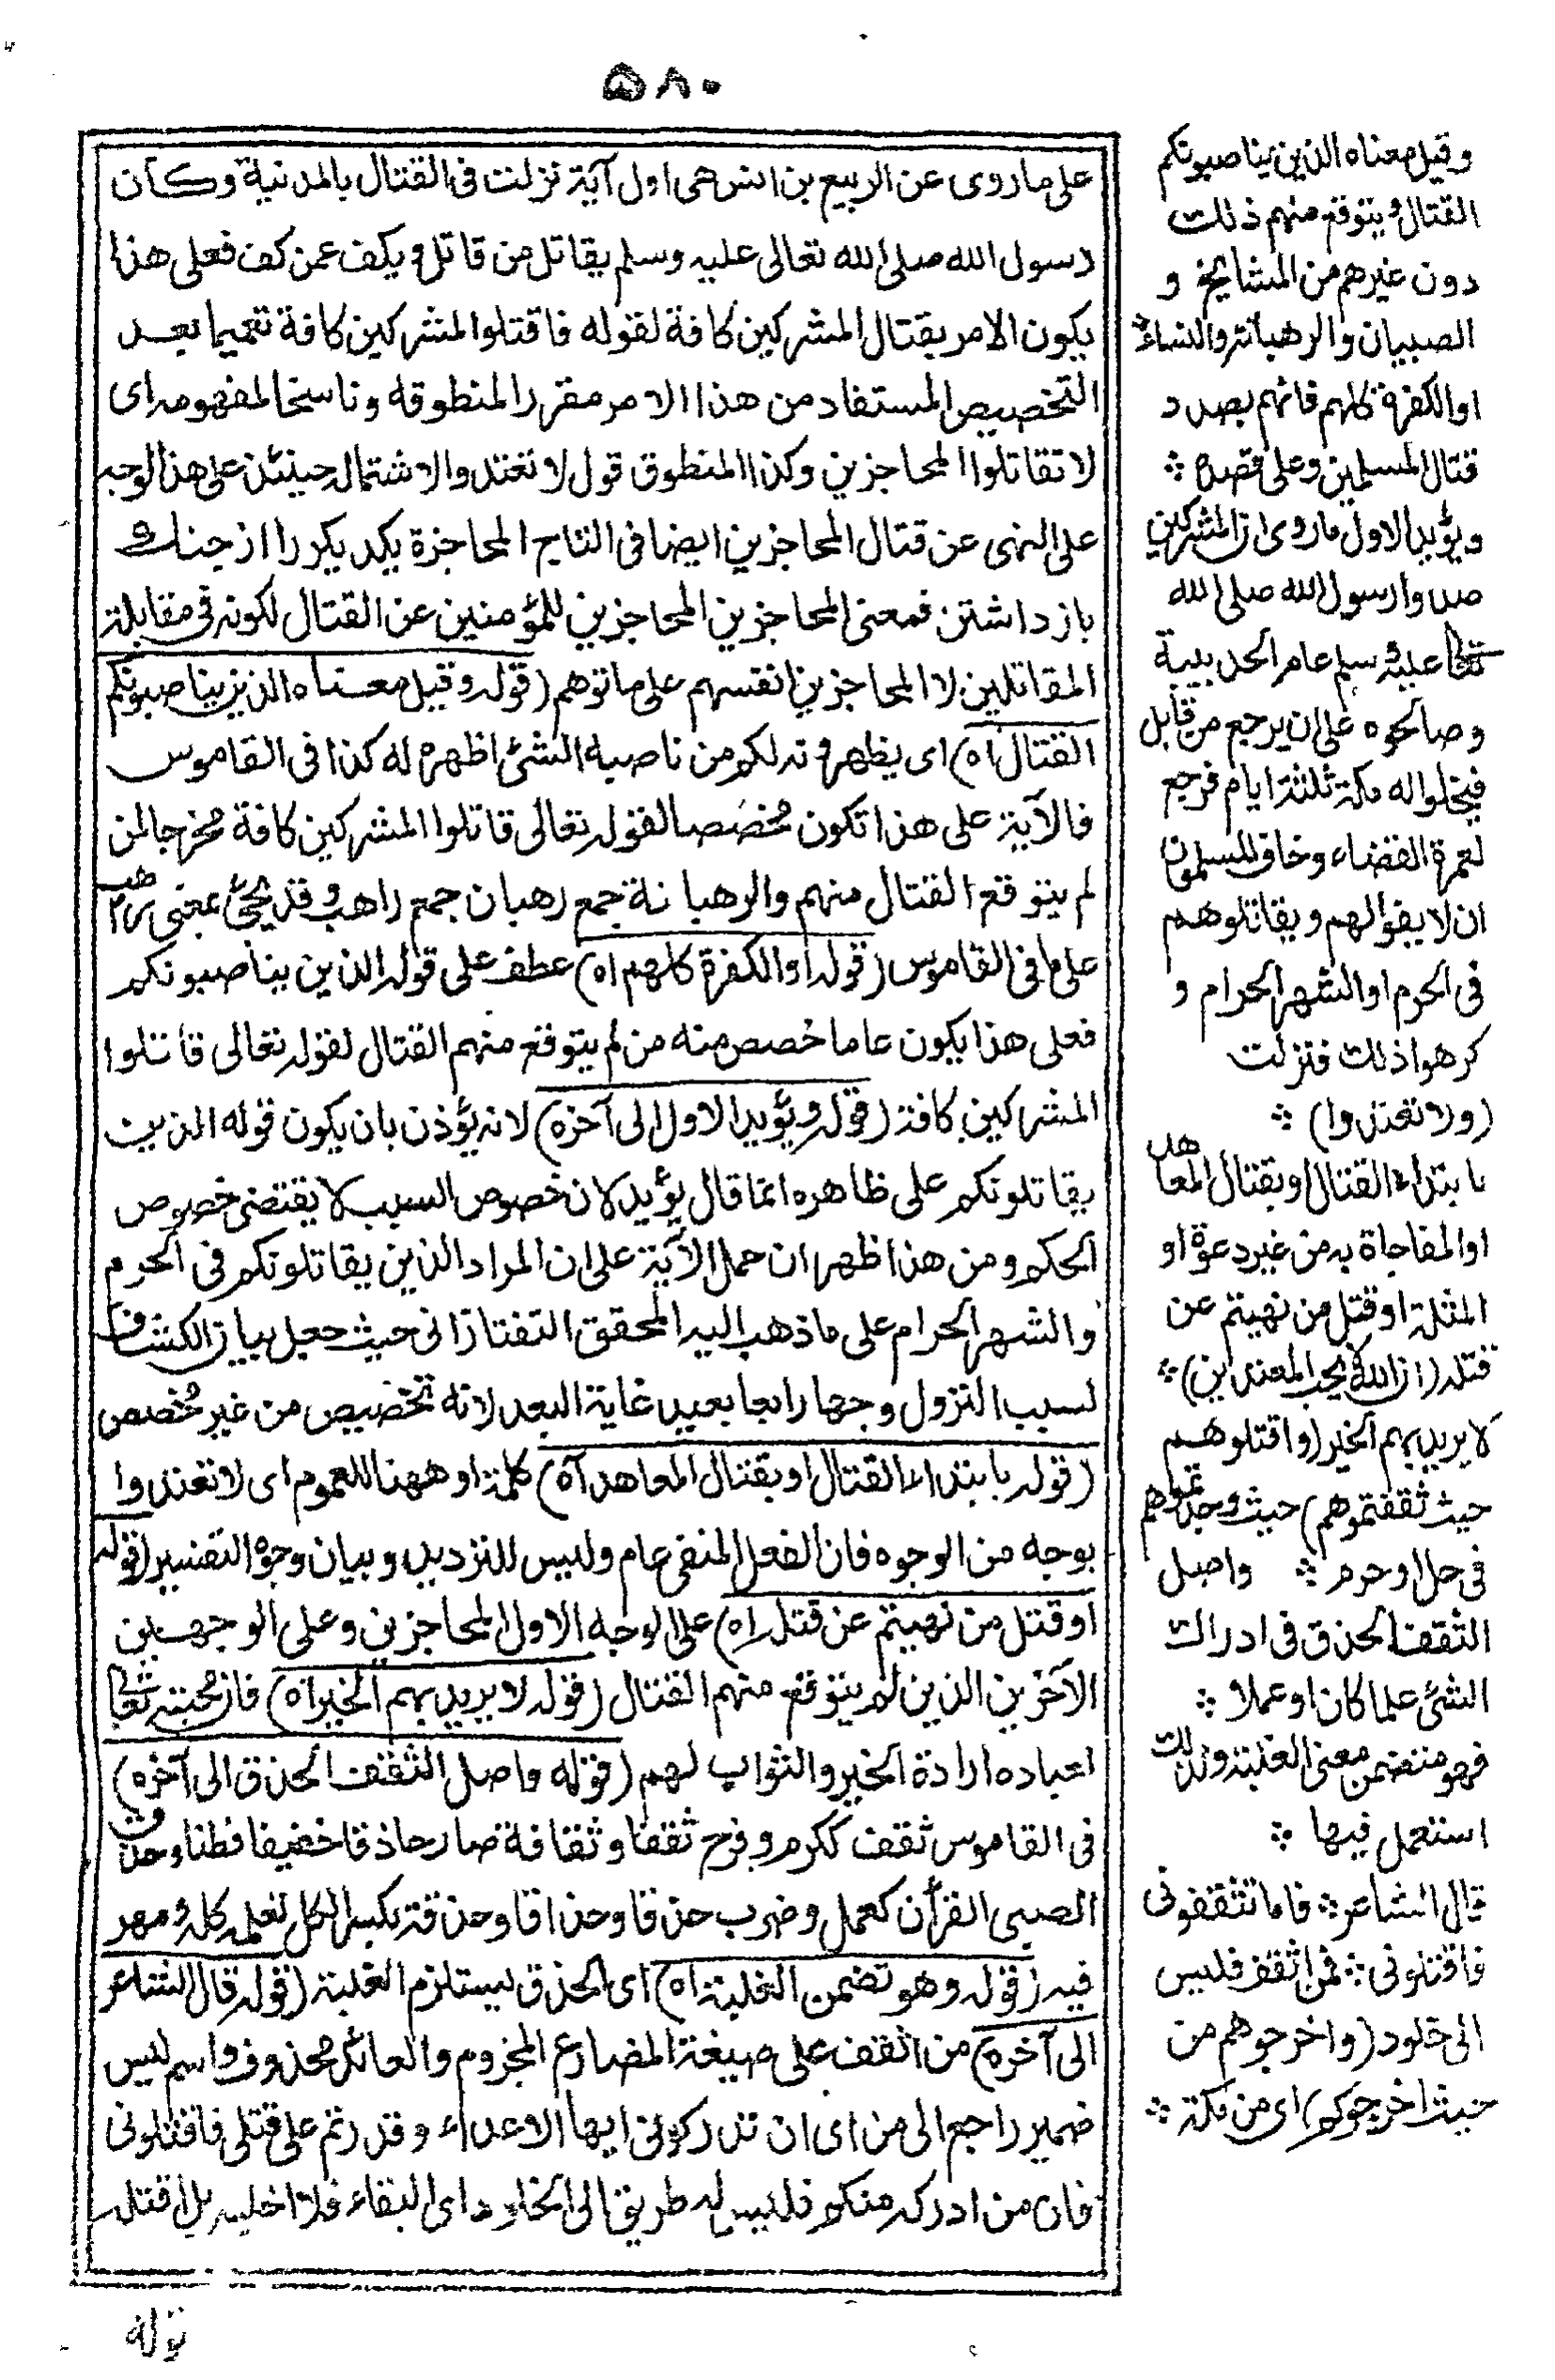 ۵۸۰
على ماروى عن الربيع بن انس هى اول آية نزلت فى القتال بالمدنية وكان
رسول الله صلى الله تعالى عليه وسلم يقاتل من قاتل ويكف عمن كف فعلى هذا
يكون الامر بقتال المشركين كافة لقوله فاقتلوا المشركين كافة تعميما بعد
التخصيص المستفاد من هذا الامر مقررا لمنطوقه وناسخا لمفهومه اى
لا تقاتلوا المحاجزين وكذا المنطوق قول لا تعتدوا والاشتمال حينئذ على هذا الوجه
على النهى عن قتال المحاجزين ايضا فى التاج المحاجزة يكديكر را از جنك
باز داشتن فمعنى المحاجزين المحاجزين للمؤمنين عن القتال لكونه فى مقابلة
المقاتلين لا المحاجزين انفسهم على ماتوهم (قوله وقيل معناه الذين يناصبونكم
القتال اه) اى يظهرونه لكم من ناصبه الشئ اظهره له كذا فى القاموس
فالآية على هذا تكون مخصصا لقوله تعالى قاتلوا المشركين كافة مخرجا لمن
لم يتوقع القتال منهم والرهبانة جمع رهبان جمع راهب وقد يجئ بمعنى راهب
على ما فى القاموس (قوله او الكفرة كلهم اه) عطف على قوله الذين يناصبونكم
فعلى هذا يكون عاما خصص منه من لم يتوقع منهم القتال لقوله تعالى قاتلوا
المشركين كافة (قوله ويؤيد الاول الى آخره) لانه يؤذن بان يكون قوله الذين
يقاتلونكم على ظاهره انما قال يؤيد لان خصوص السبب لا يقتضى خصوص
الحكم ومن هذا ظهر ان حمل الآية على ان المراد الذين يقاتلونكم فى الحرم
والشهر الحرام على ما ذهب اليه المحقق التفتازانى حيث جعل بيان الكشاف
لسبب النزول وجها رابعا بعيد غاية البعد لانه تخصيص من غير مخصص
(قوله بابتداء القتال او بقتال المعاهد آه) كلمة او ههنا للعموم اى لا تعتدوا
بوجه من الوجوه فان الفعل المنفى عام وليس للترديد وبيان وجوه التفسير (قوله
او قتل من نهيتم عن قتله اه) على الوجه الاول المحاجزين وعلى الوجهين
الآخرين الذين لم يتوقع منهم القتال (قوله لا يريد بهم الخير اه) فان محبته تعالى
لعباده ارادة الخير والثواب لهم (قوله واصل الثقف الحذق الى آخره)
فى القاموس ثقف ككرم وفرح ثقفا وثقافة صار حاذقا خفيفا فطنا وحذق
الصبى القرأن كعمل وضرب حذقا وحذاقا وحذقة بكسر الكل تعلمه كله ومهر
فيه (قوله وهو تضمن الغلبة اه) اى الحذق يستلزم الغلبة (قوله قال الشاعر
الى آخره) من اثقف على صيغة المضارع المجزوم والعائد محذوف واسم ليس
ضمير راجع الى من اى ان تدركونى ايها الاعداء وقدرتم على قتلى فاقتلونى
فان من ادركه منكم فليس له طريق الى الخلود اى البقاء فلا اخليه بل اقتله
قوله
وقيل معناه الذين يناصبونكم
القتال ويتوقع منهم ذلك
دون غيرهم من المشايخ و
الصبيان والرهبانة والنساء
او الكفرة كلهم فانهم بصدد
قتال المسلمين وعلى قصده ؞
ويؤيد الاول ما روى ان المشركين
صدوا رسول الله صلى الله
تعالى عليه وسلم عام الحديبية
وصالحوه على ان يرجع من قابل
فيخلوا له مكة ثلثة ايام فرجع
لعمرة القضاء وخاف المسلمون
ان لا يفوا لهم ويقاتلوهم
فى الحرم او الشهر الحرام و
كرهوا ذلك فنزلت
(ولا تعتدوا) ؞
بابتداء القتال او بقتال المعاهد
او المفاجاة به من غير دعوة او
المثلة او قتل من نهيتم عن
قتله (ان الله لا يحب المعتدين) ؞
لا يريد بهم الخير (واقتلوهم
حيث ثقفتموهم) حيث وجدتموهم
فى حل او حرم ؞ واصل
الثقف الحذق فى ادراك
الشئ علما كان او عملا ؞
فهو متضمن معنى الغلبة ولذلك
استعمل فيها ؞
قال الشاعر ؞ فاما تثقفونى
فاقتلونى ؞ فمن اثقف فليس
الى خلود (واخرجوهم من
حيث اخرجوكم) اى من مكة ؞